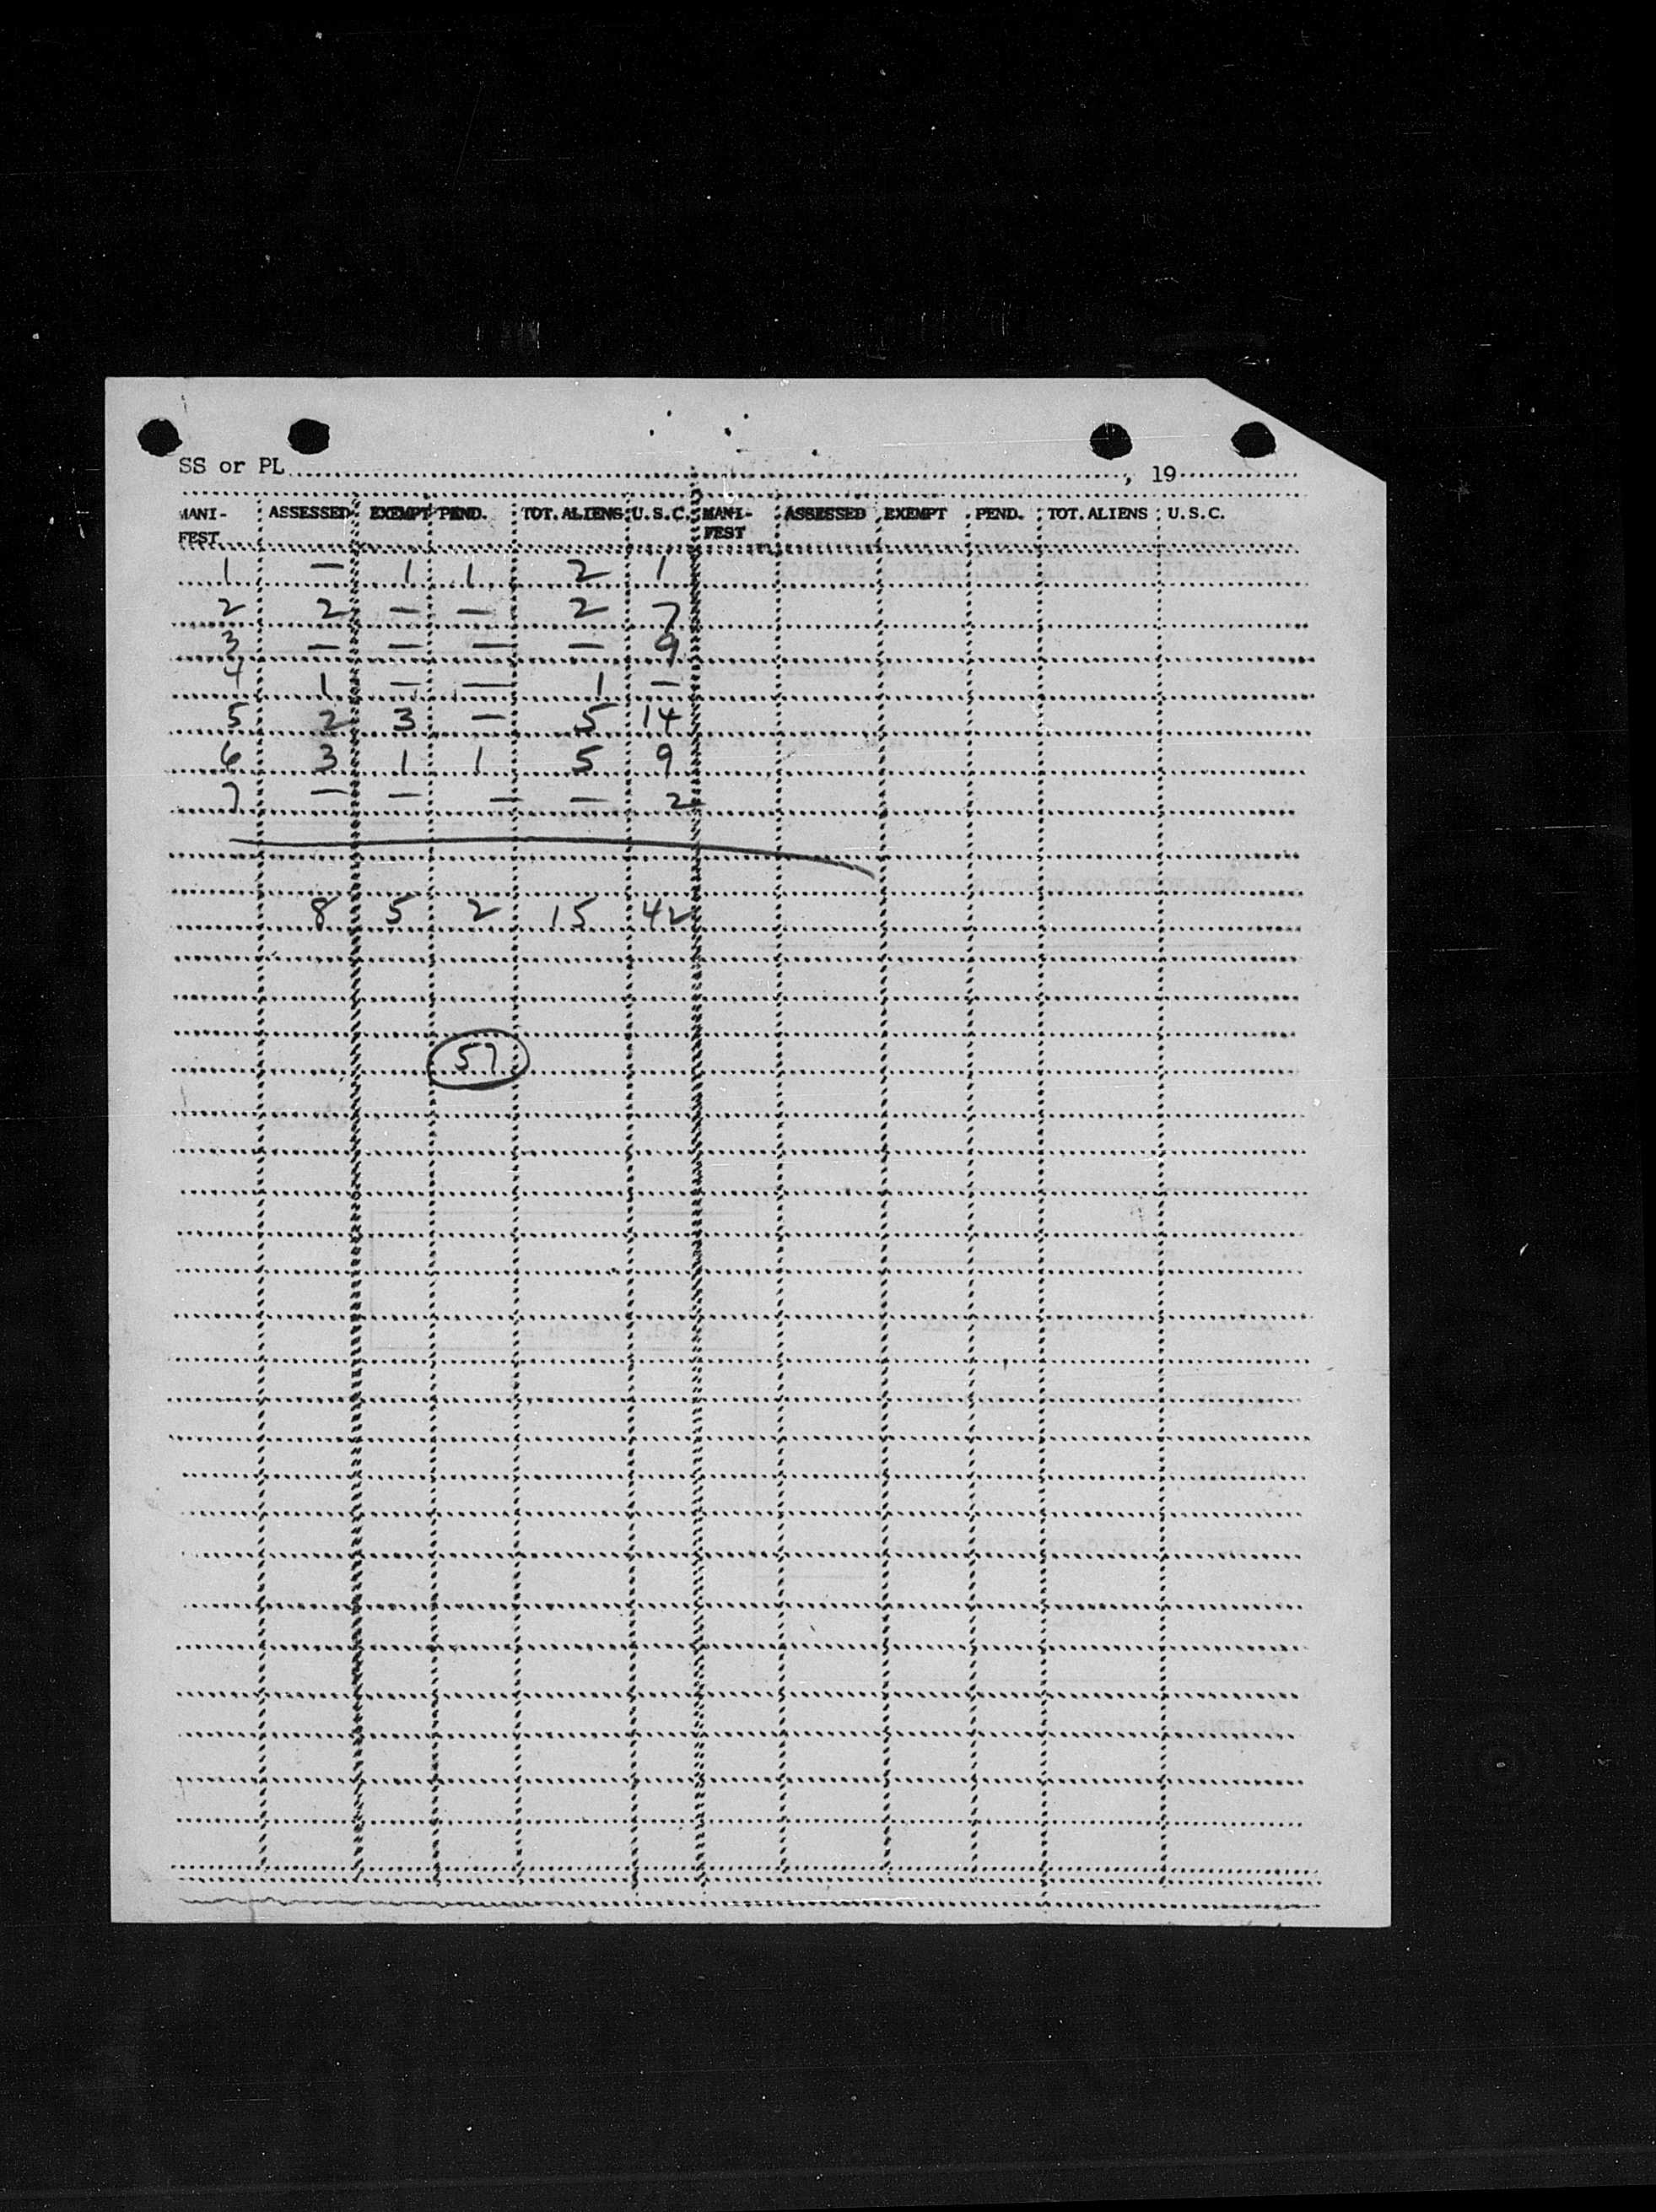 SS or PL , 19
MANI- ASSESSED EXEMPT PEND. TOT. ALIENS U.S.C. MANI- ASSESSED EXEMPT PEND. TOT. ALIENS U.S.C.
FEST FEST
1 — 1 1 2 1
2 2 — — 2 7
3 — — — — 9
4 1 — — 1 —
5 2 3 — 5 14
6 3 1 1 5 9
7 — — — — 2
8 5 2 15 42
57